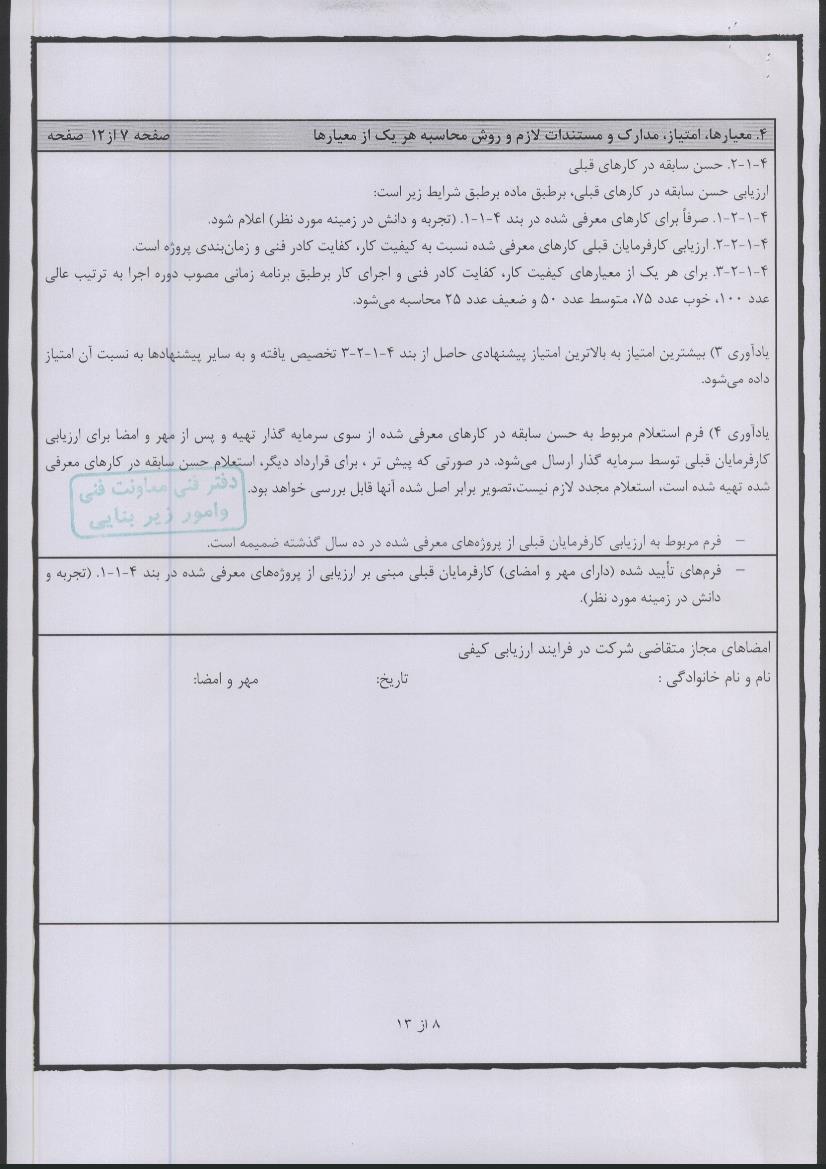 ۴. معیارها، امتیاز، مدارک و مستندات لازم و روش محاسبه هر یک از معیارها صفحه ۷ از ۱۲ صفحه
۴-۱-۲. حسن سابقه در کارهای قبلی
ارزیابی حسن سابقه در کارهای قبلی، برطبق ماده برطبق شرایط زیر است:
۴-۱-۲-۱. صرفاً برای کارهای معرفی شده در بند ۴-۱-۱. (تجربه و دانش در زمینه مورد نظر) اعلام شود.
۴-۱-۲-۲. ارزیابی کارفرمایان قبلی کارهای معرفی شده نسبت به کیفیت کار، کفایت کادر فنی و زمان‌بندی پروژه است.
۴-۱-۲-۳. برای هر یک از معیارهای کیفیت کار، کفایت کادر فنی و اجرای کار برطبق برنامه زمانی مصوب دوره اجرا به ترتیب عالی
عدد ۱۰۰، خوب عدد ۷۵، متوسط عدد ۵۰ و ضعیف عدد ۲۵ محاسبه می‌شود.
یادآوری ۳) بیشترین امتیاز به بالاترین امتیاز پیشنهادی حاصل از بند ۴-۱-۲-۳ تخصیص یافته و به سایر پیشنهادها به نسبت آن امتیاز
داده می‌شود.
یادآوری ۴) فرم استعلام مربوط به حسن سابقه در کارهای معرفی شده از سوی سرمایه گذار تهیه و پس از مهر و امضا برای ارزیابی
کارفرمایان قبلی توسط سرمایه گذار ارسال می‌شود. در صورتی که پیش تر ، برای قرارداد دیگر، استعلام حسن سابقه در کارهای معرفی
شده تهیه شده است، استعلام مجدد لازم نیست،تصویر برابر اصل شده آنها قابل بررسی خواهد بود.
دفتر فنی معاونت فنی
وامور زیر بنایی
– فرم مربوط به ارزیابی کارفرمایان قبلی از پروژه‌های معرفی شده در ده سال گذشته ضمیمه است.
– فرم‌های تأیید شده (دارای مهر و امضای) کارفرمایان قبلی مبنی بر ارزیابی از پروژه‌های معرفی شده در بند ۴-۱-۱. (تجربه و
دانش در زمینه مورد نظر).
امضاهای مجاز متقاضی شرکت در فرایند ارزیابی کیفی
نام و نام خانوادگی : تاریخ: مهر و امضا:
۸ از ۱۳